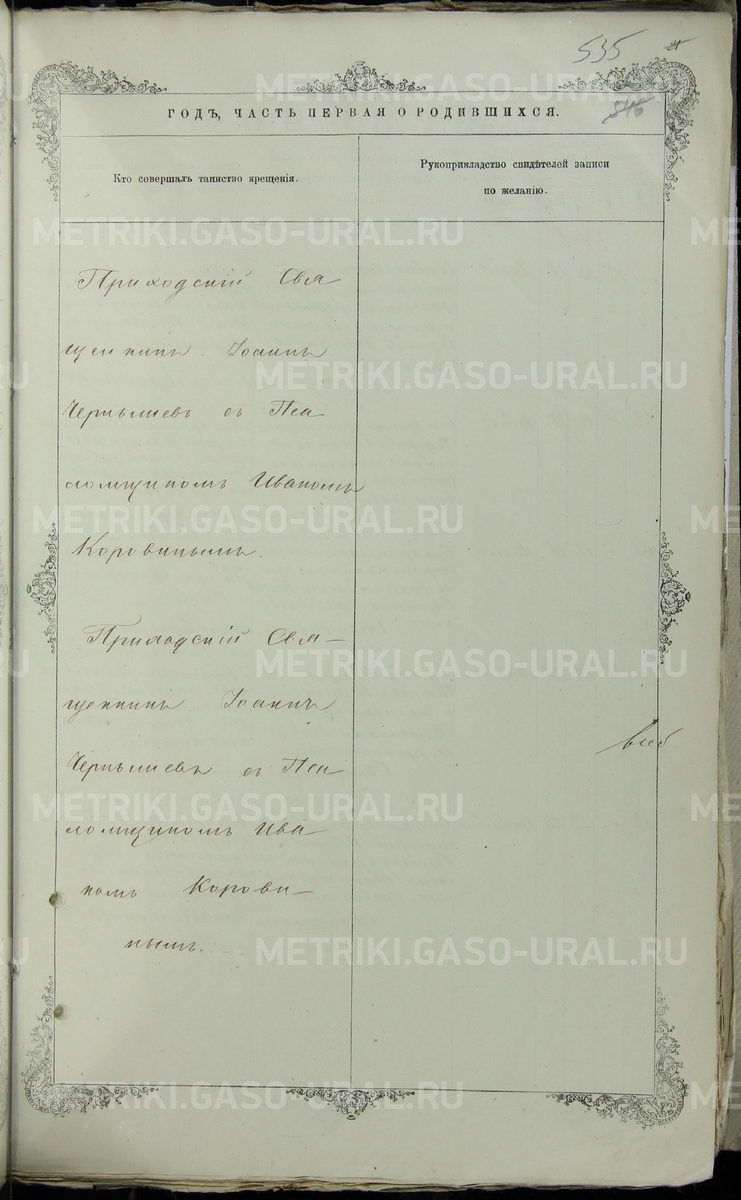 535
21
546
ГОДЪ, ЧАСТЬ ПЕРВАЯ О РОДИВШИХСЯ.
Кто совершалъ таинство крещенія.
Рукоприкладство свидѣтелей записи
по желанію.
Приходскій Свя
щенникъ Іоаннъ
Чернышевъ съ Пса
ломщикомъ Иваномъ
Коровинымъ.
Приходскій Свя—
щенникъ Іоаннъ
Чернышевъ съ Пса
ломщикомъ Ива
номъ Корови—
нымъ.
METRIKI.GASO-URAL.RU